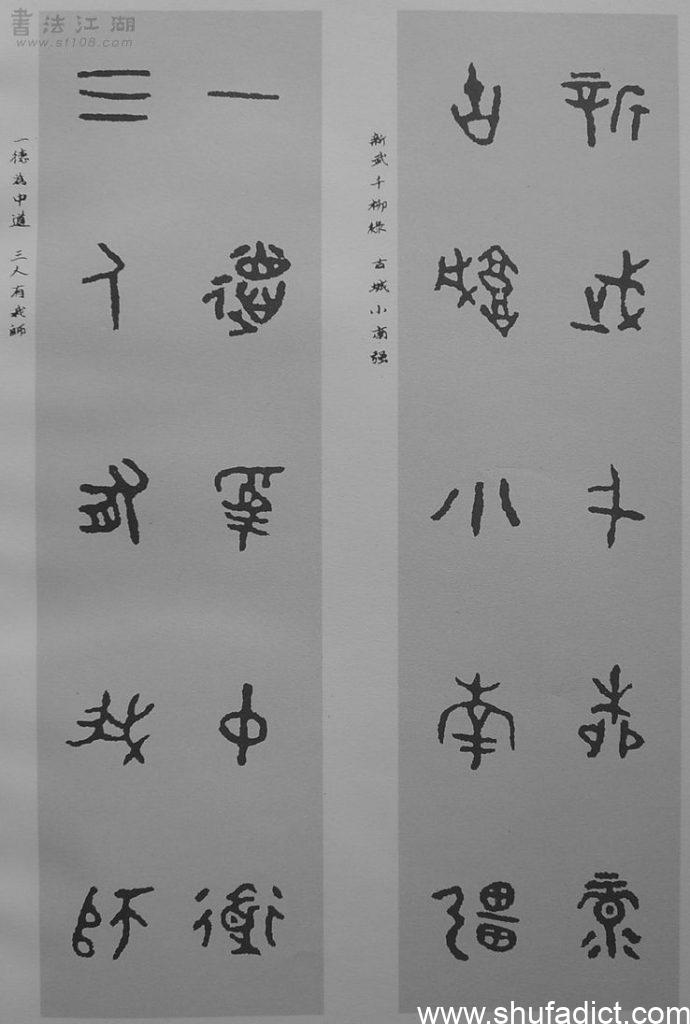 書法江湖
www.sf108.com
新武千柳綠
古城小南彊
新武千柳綠 古城小南强
一德為中道
三人有我師
一德為中道 三人有我師
www.shufadict.com